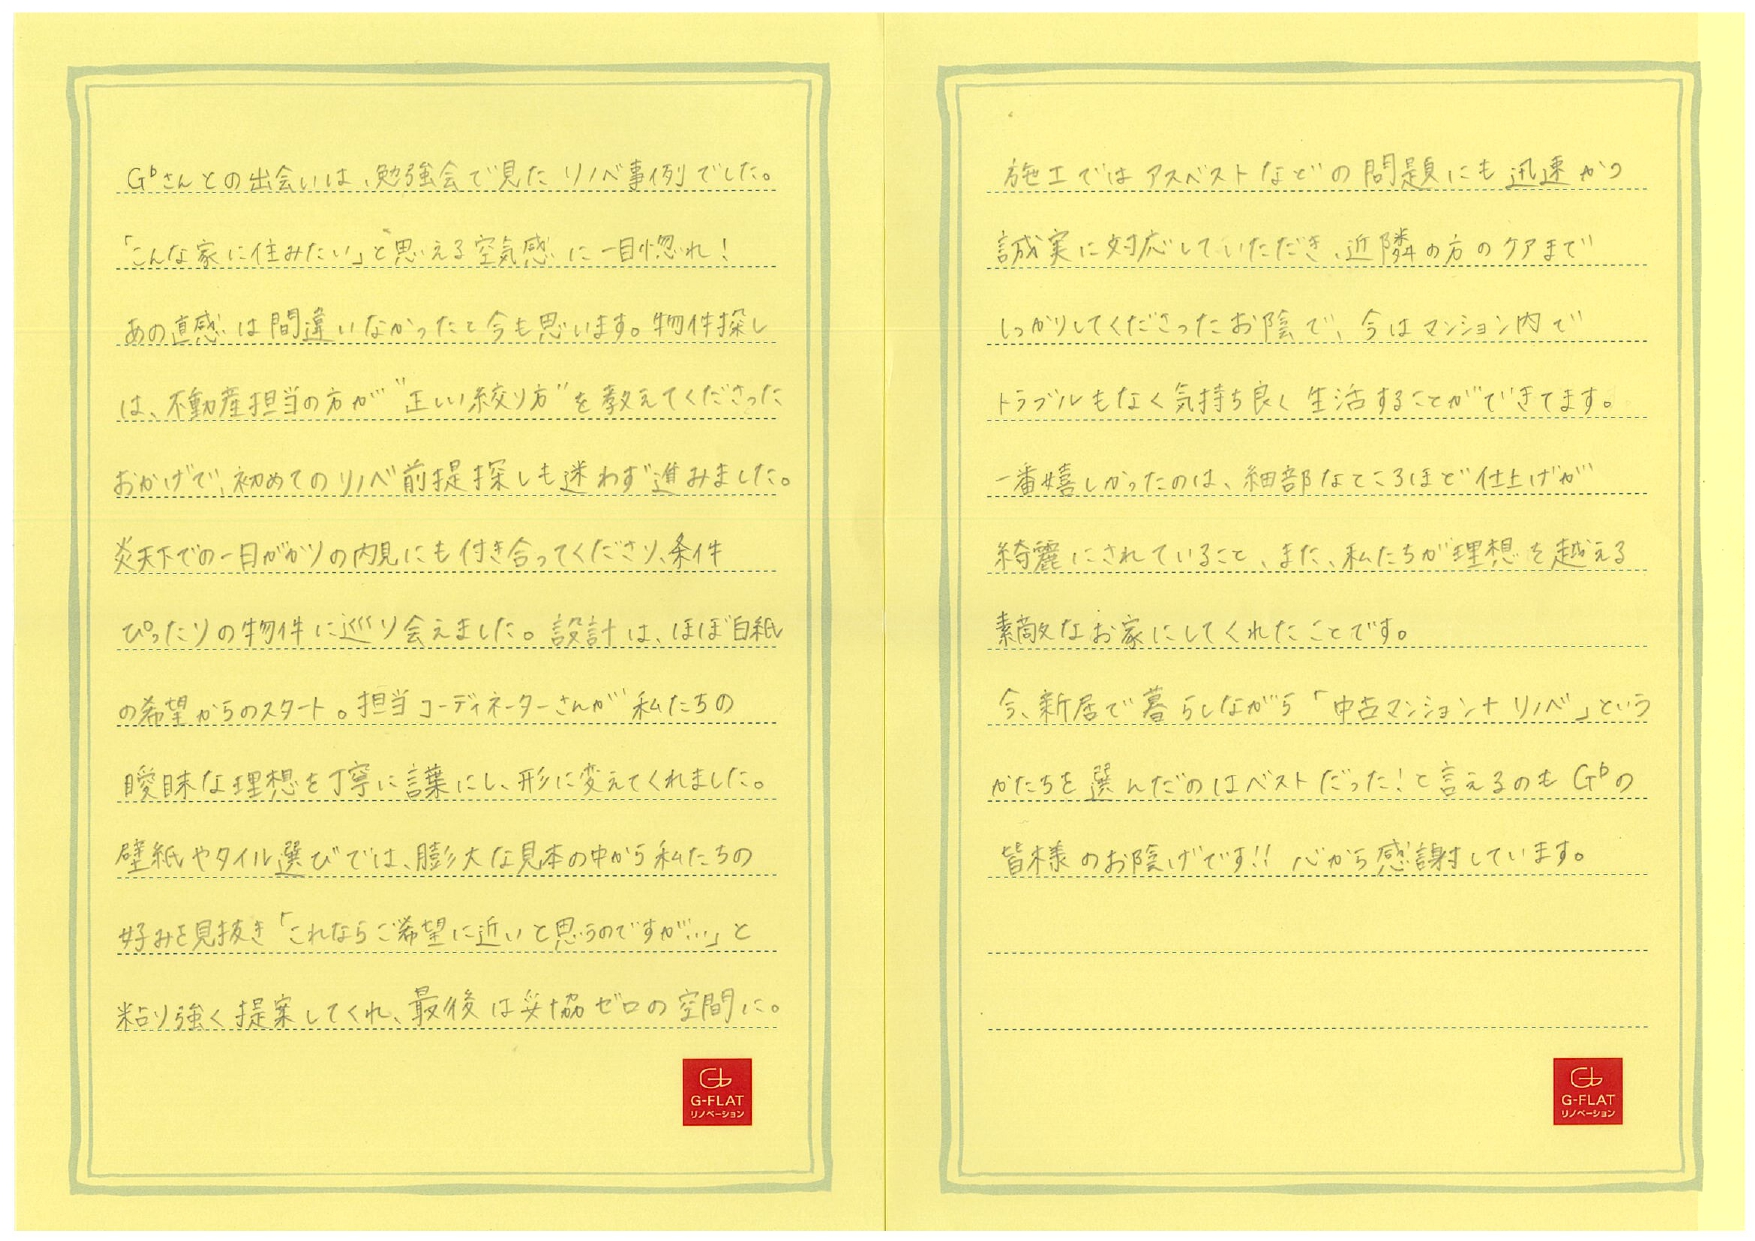 G♭さんとの出会いは、勉強会で見た リノベ事例でした。
「こんな家に住みたい」と思える空気感に一目惚れ！
あの直感は間違いなかったと今も思います。物件探し
は、不動産担当の方が"正しい絞り方"を教えてくださった
おかげで、初めてのリノベ前提探しも迷わず進みました。
炎天下での一日がかりの内見にも付き合ってくださり、条件
ぴったりの物件に巡り会えました。設計は、ほぼ白紙
の希望からのスタート。担当コーディネーターさんが私たちの
曖昧な理想を丁寧に言葉にし、形に変えてくれました。
壁紙やタイル選びでは、膨大な見本の中から私たちの
好みを見抜き「これならご希望に近いと思うのですが…」と
粘り強く提案してくれ、最後は妥協ゼロの空間に。
G-FLAT
リノベーション
施工ではアスベストなどの問題にも迅速かつ
誠実に対応していただき、近隣の方のケアまで
しっかりしてくださったお陰で、今はマンション内で
トラブルもなく気持ち良く生活することができてます。
一番嬉しかったのは、細部なところほど仕上げが
綺麗にされていること、また、私たちが理想を越える
素敵なお家にしてくれたことです。
今、新居で暮らしながら「中古マンション＋リノベ」という
かたちを選んだのはベストだった！と言えるのもG♭の
皆様のお陰げです!! 心から感謝しています。
G-FLAT
リノベーション